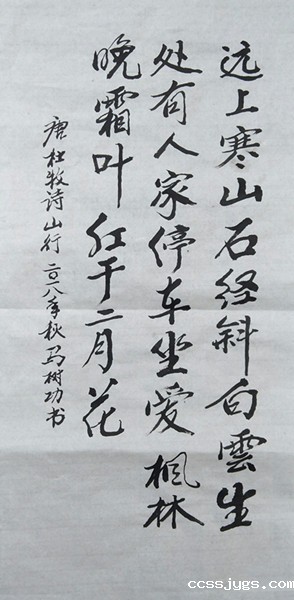 远上寒山石经斜白雲生
处有人家停车坐愛枫林
晚霜叶红于二月花
唐杜牧诗山行二〇一八年秋马树功书
ccssjygs.com